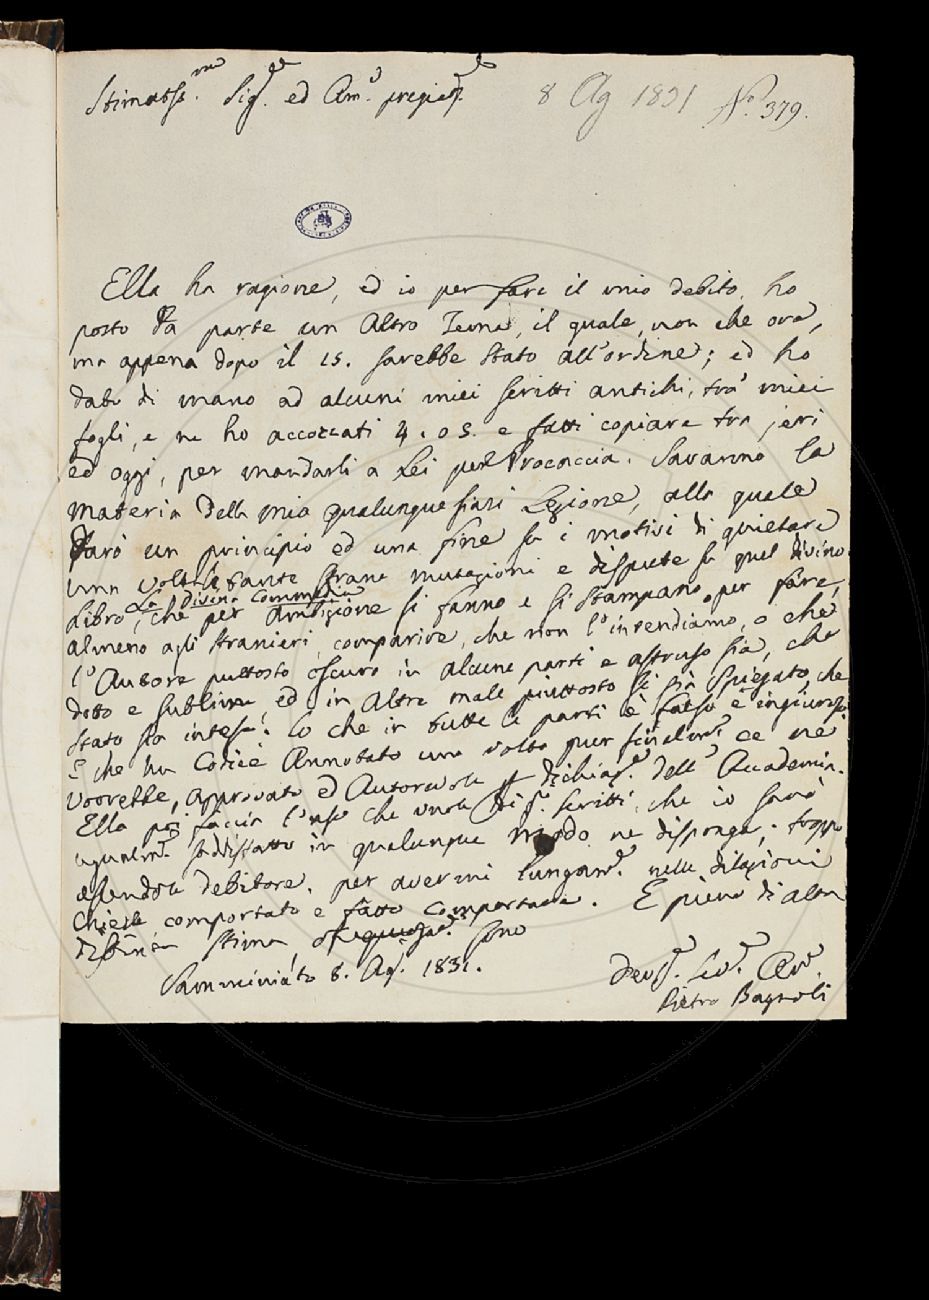 Stimatiss.mo Sig.re ed Am.o pregiat.o
8 Ag 1831 N.o 379.
Ella ha ragione, ed io per fare il mio debito, ho
posto da parte un altro Tema, il quale, non che ora,
ma appena dopo il 15. sarebbe stato all'ordine; ed ho
dato di mano ad alcuni miei scritti antichi, tra' miei
fogli, e ne ho accozzati 4. o 5. e fatti copiare tra jeri
ed oggi, per mandarli a Lei pel Procaccia. Saranno la
materia della mia qualunque siasi Lezione, alla quale
darò un principio ed una fine su i motivi di quietare
una volta tante strane mutazioni e dispute su quel divino
La Divina Commedia
Libro, che per Ambizione si fanno e si stampano, per fare,
almeno agli stranieri, comparire, che non l'intendiamo, o che
l'Autore puttosto oscuro in alcune parti e astruso sia, che
dotto e sublime ed in altre male piuttosto si sia spiegato, che
stato sia inteso: lo che in tutte le parti è falso e ingiurioso
E che un Codice Annotato una volta pur finalm.e ce ne
vorrebbe, approvato ed Autorevole p dichiaz.e dell'Accademia.
Ella poi faccia l'uso che vuole di scritti, che io sarò
ugualm.e soddisfatto in qualunque modo ne disponga, troppo
essendole debitore, per avermi lungam.e nelle dilazioni
chieste comportato e fatto comportare. E pieno di alta
distinta stima sono
Samminiato 8. Ag.o 1831.
Dev.o Serv.e Am.o
Pietro Bagnoli